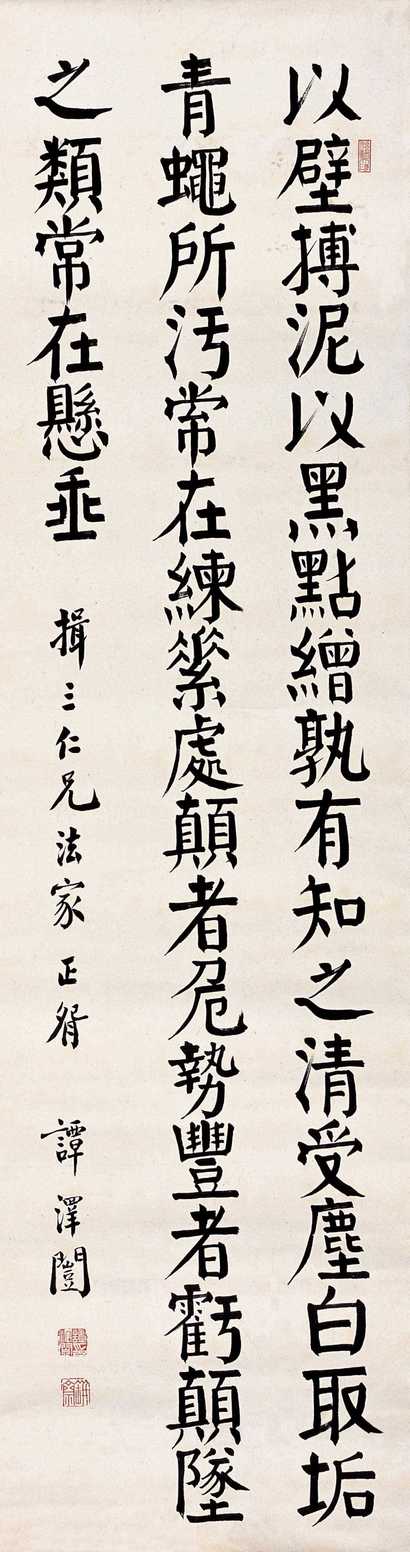 以壁搏泥以黑點繒孰有知之清受塵白取垢
青蠅所汚常在練絭處顛者危勢豐者虧顛墜
之類常在懸垂
揖三仁兄法家正腎
譚澤闓